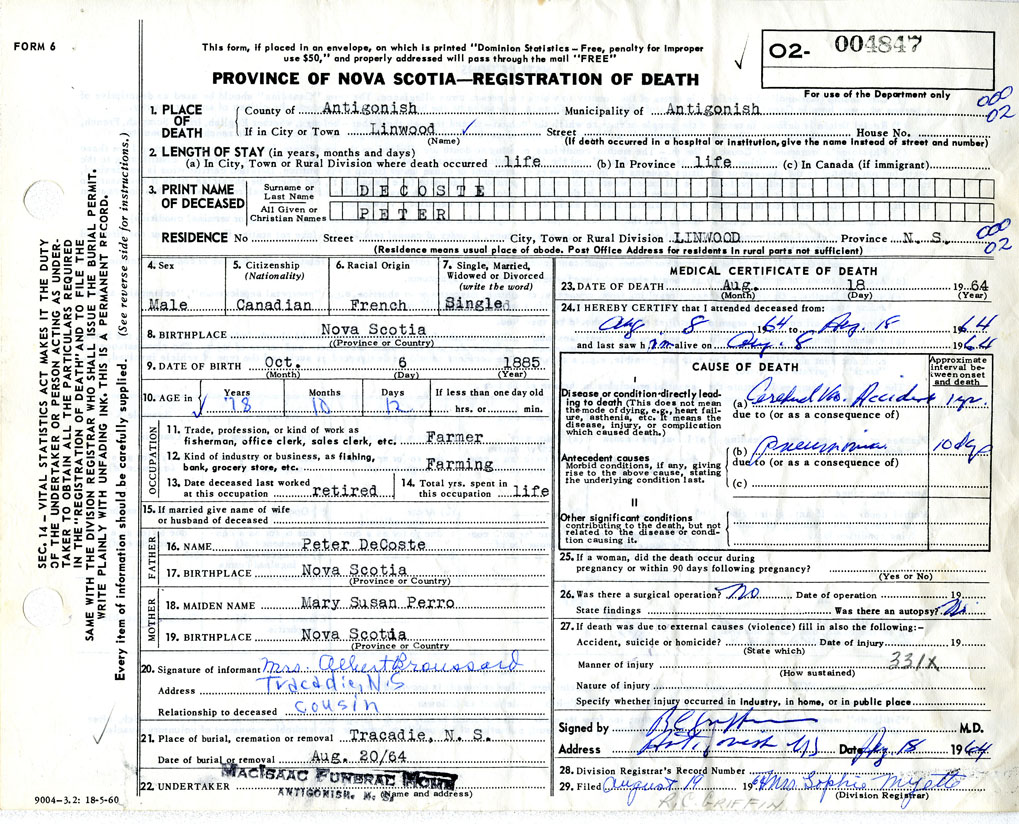 FORM 6
This form, if placed in an envelope, on which is printed "Dominion Statistics – Free, penalty for improper
use $50," and properly addressed will pass through the mail "FREE"
PROVINCE OF NOVA SCOTIA—REGISTRATION OF DEATH
O2- 004847
For use of the Department only
000
02
SEC. 14 – VITAL STATISTICS ACT MAKES IT THE DUTY
OF THE UNDERTAKER OR PERSON ACTING AS UNDER-
TAKER TO OBTAIN ALL THE PARTICULARS REQUIRED
IN THE "REGISTRATION OF DEATH" AND TO FILE THE
SAME WITH THE DIVISION REGISTRAR WHO SHALL ISSUE THE BURIAL PERMIT.
WRITE PLAINLY WITH UNFADING INK. THIS IS A PERMANENT RECORD.
Every item of information should be carefully supplied. (See reverse side for instructions.)
1. PLACE OF DEATH
County of Antigonish Municipality of Antigonish
If in City or Town Linwood Street House No.
(Name) (If death occurred in a hospital or institution, give the name instead of street and number)
2. LENGTH OF STAY (in years, months and days)
(a) In City, Town or Rural Division where death occurred life (b) In Province life (c) In Canada (if immigrant)
3. PRINT NAME OF DECEASED
Surname or Last Name DECOSTE
All Given or Christian Names PETER
RESIDENCE No Street City, Town or Rural Division LINWOOD Province N. S.
(Residence means usual place of abode. Post Office Address for residents in rural parts not sufficient)
000
02
4. Sex Male
5. Citizenship (Nationality) Canadian
6. Racial Origin French
7. Single, Married, Widowed or Divorced (write the word) Single
8. BIRTHPLACE Nova Scotia
(Province or Country)
9. DATE OF BIRTH Oct. 6 1885
(Month) (Day) (Year)
10. AGE in Years 78 Months 10 Days 12 If less than one day old hrs. or min.
OCCUPATION
11. Trade, profession, or kind of work as
fisherman, office clerk, sales clerk, etc. Farmer
12. Kind of industry or business, as fishing,
bank, grocery store, etc. Farming
13. Date deceased last worked
at this occupation retired
14. Total yrs. spent in
this occupation life
15. If married give name of wife
or husband of deceased
FATHER
16. NAME Peter DeCoste
17. BIRTHPLACE Nova Scotia
(Province or Country)
MOTHER
18. MAIDEN NAME Mary Susan Perro
19. BIRTHPLACE Nova Scotia
(Province or Country)
20. Signature of informant Mrs. Albert Broussard
Address Tracadie, N.S
Relationship to deceased cousin
21. Place of burial, cremation or removal Tracadie, N. S.
Date of burial or removal Aug. 20/64
22. UNDERTAKER MACISAAC FUNERAL HOME
ANTIGONISH, N. S. (Name and address)
9004–3.2: 18-5-60
MEDICAL CERTIFICATE OF DEATH
23. DATE OF DEATH Aug. 18 1964
(Month) (Day) (Year)
24. I HEREBY CERTIFY that I attended deceased from:
Aug. 8 1964 to Aug. 18 1964
and last saw him alive on Aug. 8 1964
CAUSE OF DEATH
Approximate interval between onset and death
I
Disease or condition directly leading to death (This does not mean
the mode of dying, e.g., heart failure, asthenia, etc. It means the
disease, injury, or complication
which caused death.)
(a) Cerebral Vas. Accident 1 yr.
due to (or as a consequence of)
(b) Pneumonia 10 dys
due to (or as a consequence of)
(c)
Antecedent causes
Morbid conditions, if any, giving
rise to the above cause, stating
the underlying condition last.
II
Other significant conditions
contributing to the death, but not
related to the disease or condition causing it.
25. If a woman, did the death occur during
pregnancy or within 90 days following pregnancy?
(Yes or No)
26. Was there a surgical operation? No Date of operation 19
State findings Was there an autopsy? No
27. If death was due to external causes (violence) fill in also the following:–
Accident, suicide or homicide? Date of injury 19
(State which)
Manner of injury 331X
(How sustained)
Nature of injury
Specify whether injury occurred in industry, in home, or in public place
Signed by M.D.
Address Antigonish NS Date Aug 18 1964
28. Division Registrar's Record Number
29. Filed August 19 1964 Mrs Sophie Myette
(Division Registrar)
R.C. GRIFFIN